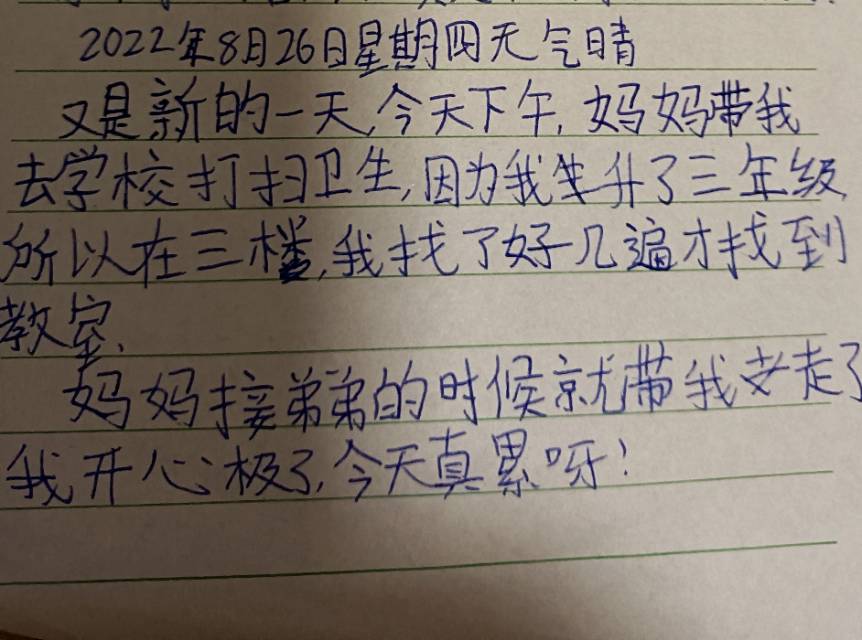 2022年8月26日星期四天气晴
又是新的一天,今天下午,妈妈带我
去学校打扫卫生,因为我生升了三年级,
所以在三楼,我找了好几遍才找到
教室.
妈妈接弟弟的时候就带我走了
我开心极了,今天真累呀!